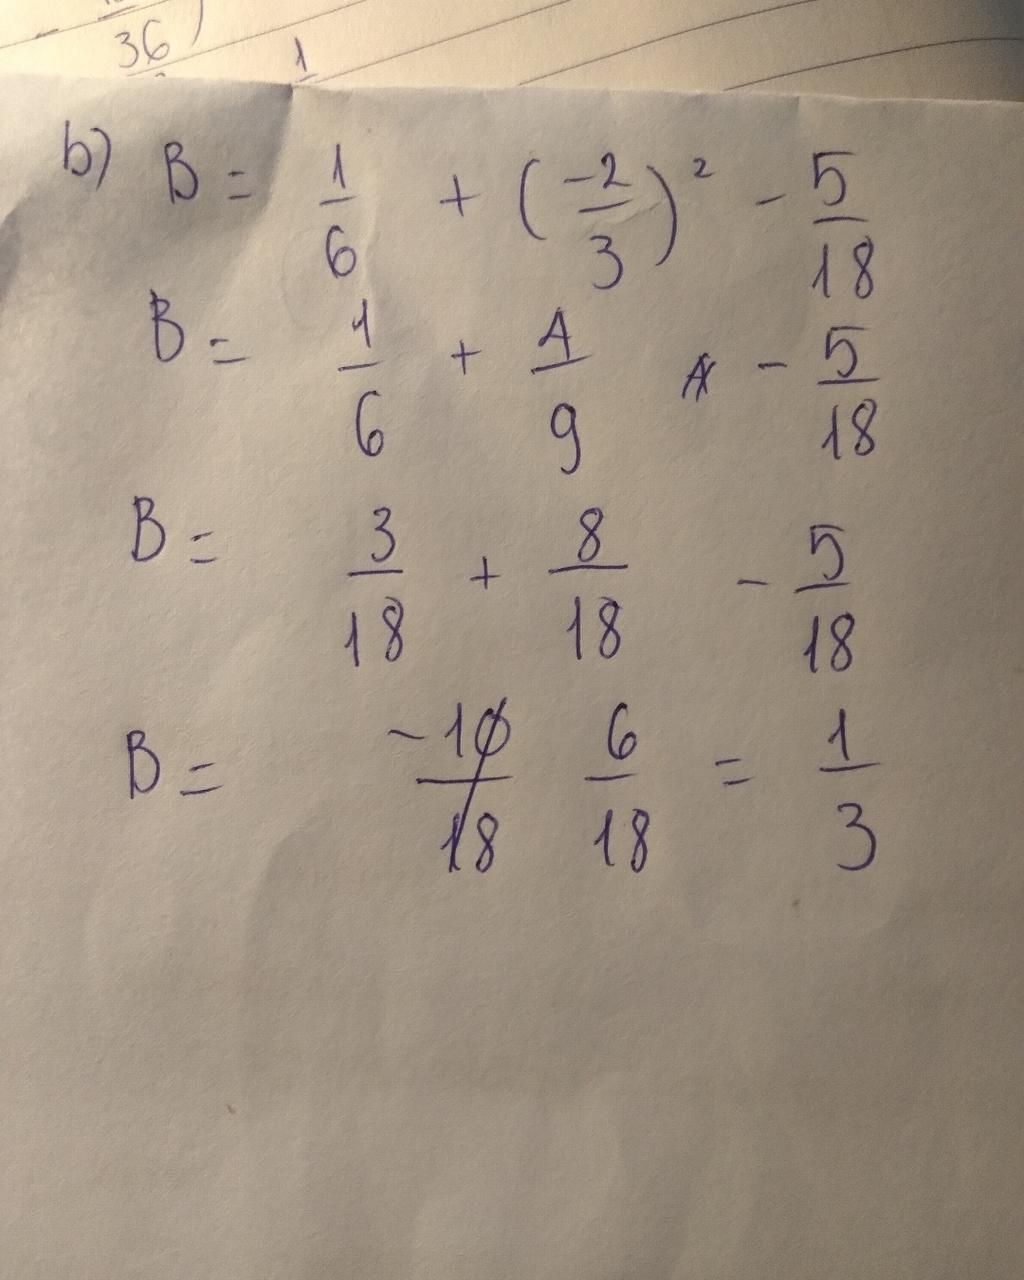 36 )
1
b) B = 1/6 + (-2/3)² - 5/18
B = 1/6 + 4/9 - 5/18
B = 3/18 + 8/18 - 5/18
B = -10/18 6/18 = 1/3